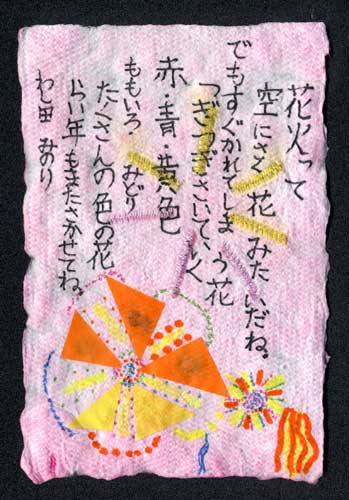 花火って
空にさく花みたいだね。
でもすぐかれてしまう花
つぎつぎさいていく
赤・青・黄色
ももいろ みどり
たくさんの色の花
らい年もまたさかせてね。
わ田 みのり